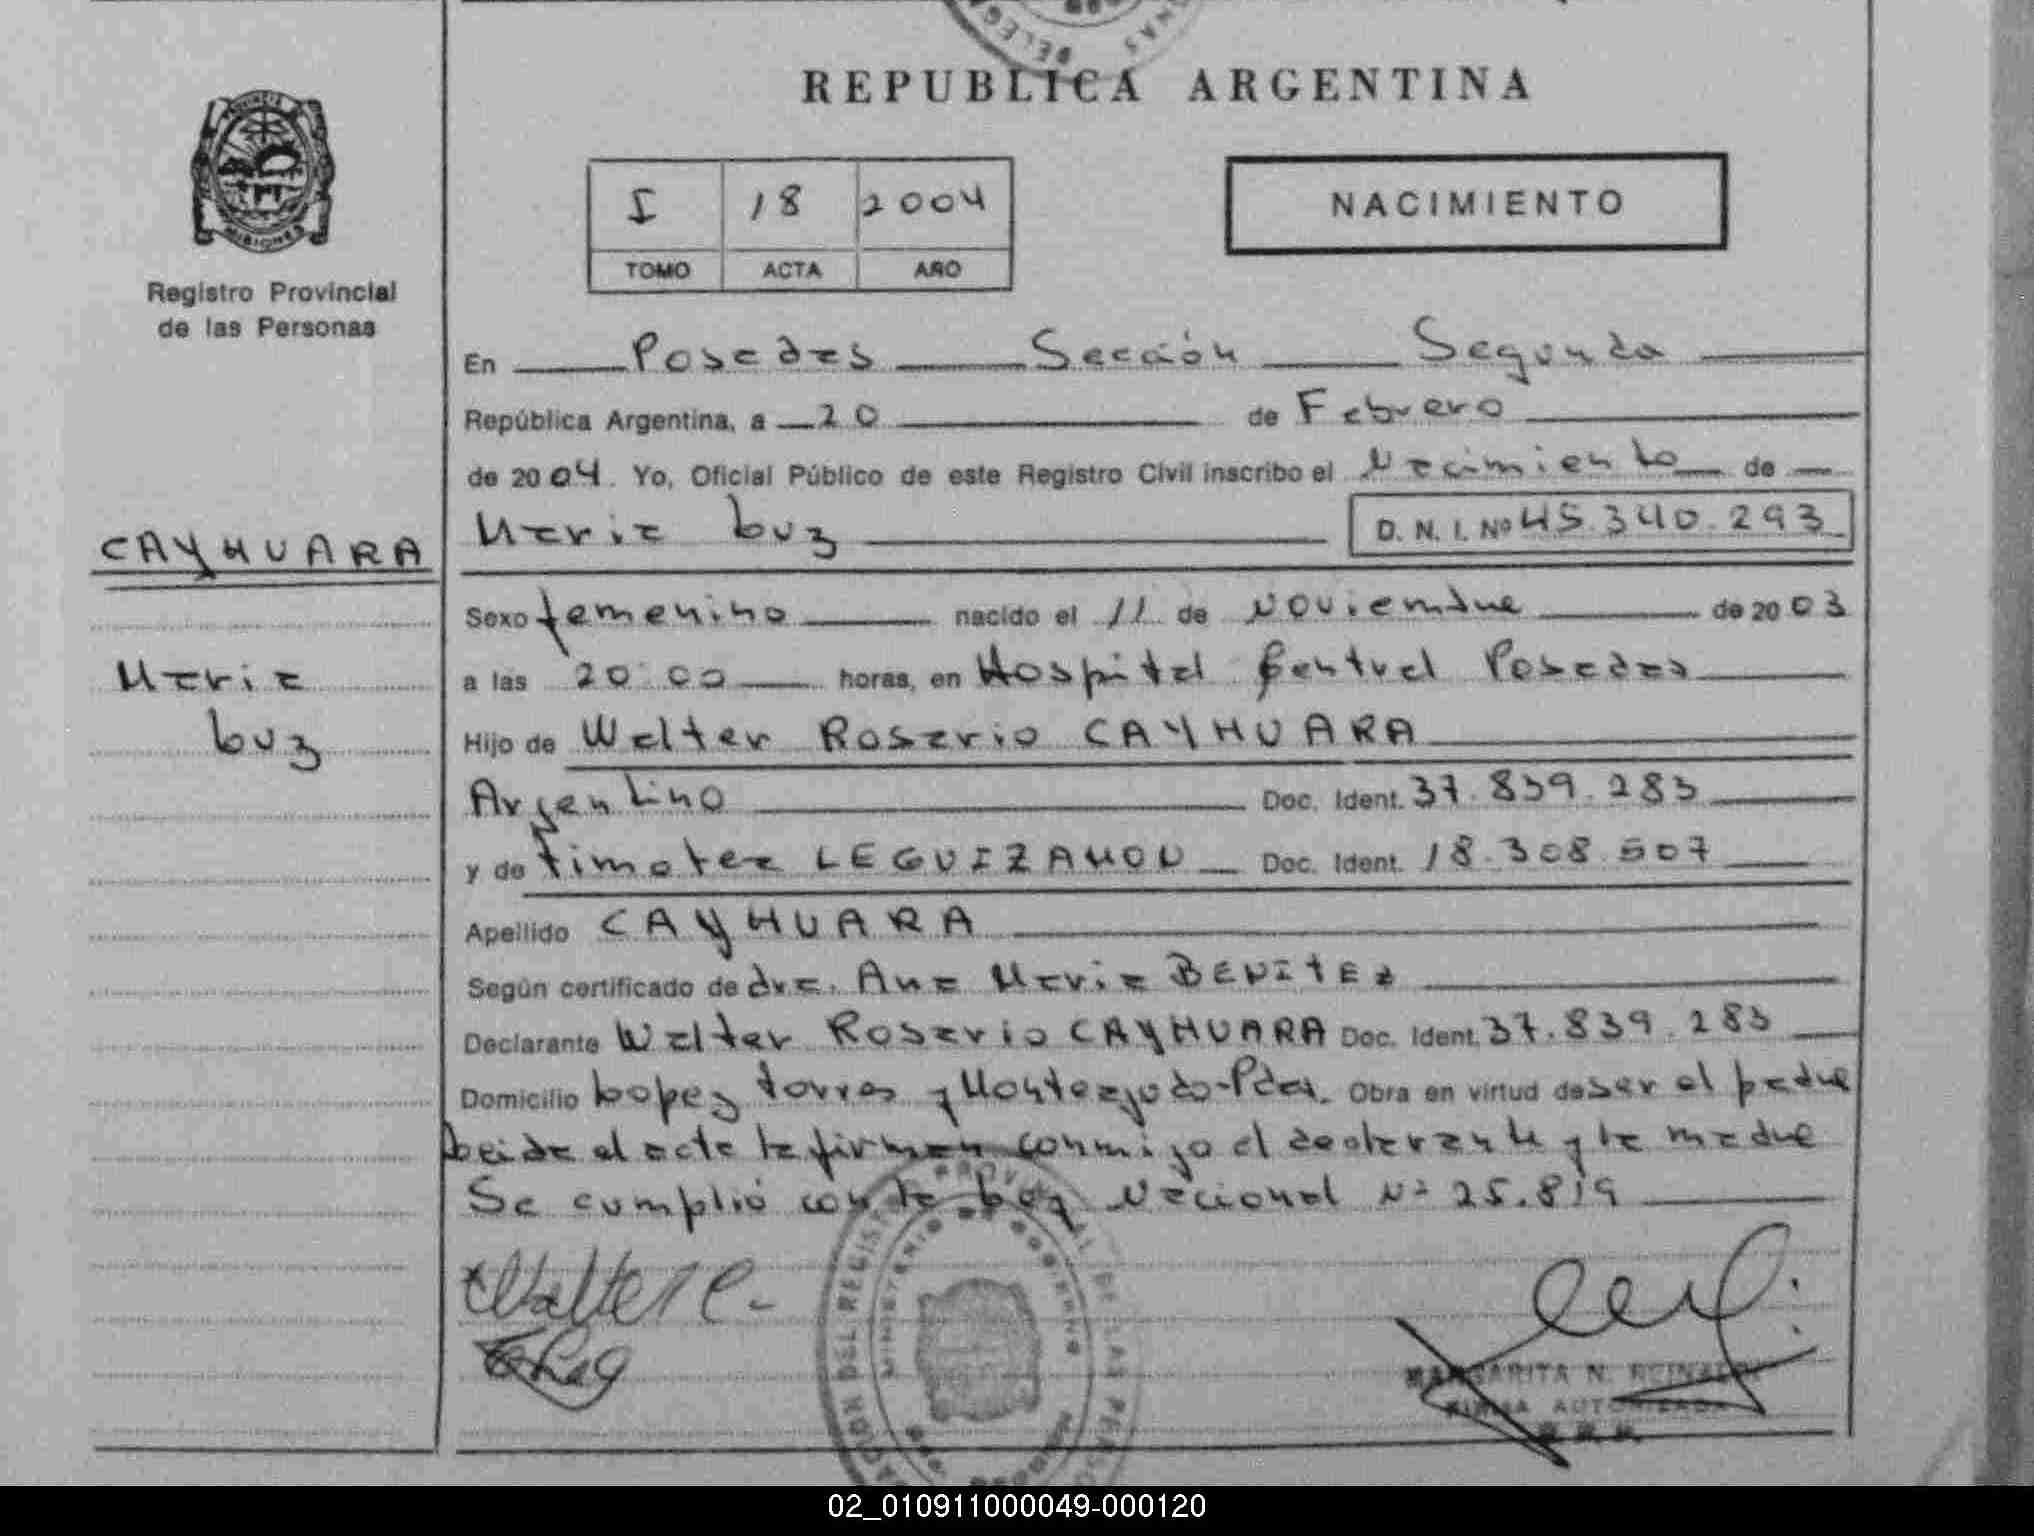 REPUBLICA ARGENTINA
MISIONES
Registro Provincial
de las Personas
I 18 2004
TOMO ACTA AÑO
NACIMIENTO
En Posadas Sección Segunda
República Argentina, a 20 de Febrero
de 2004. Yo, Oficial Público de este Registro Civil inscribo el Nacimiento de
María Luz D. N. I. Nº 45.340.293
CAYHUARA
María
Luz
Sexo femenino nacido el 11 de Noviembre de 2003
a las 20:00 horas, en Hospital Central Posadas
Hijo de Walter Rosario CAYHUARA
Argentino Doc. Ident. 37.839.283
y de Timotea LEGUIZAMON Doc. Ident. 18.308.507
Apellido CAYHUARA
Según certificado de dra. Ana María BENITEZ
Declarante Walter Rosario CAYHUARA Doc. Ident. 37.839.283
Domicilio Lopez Torres y Monteagudo-Pdas. Obra en virtud de ser el padre
Leida el acta la firman conmigo el declarante y la madre
Se cumplió con la Ley Nacional Nº 25.819
Walter C.
MINISTERIO DE GOBIERNO
MARGARITA N. REINALDI
FIRMA AUTORIZADA
02_010911000049-000120